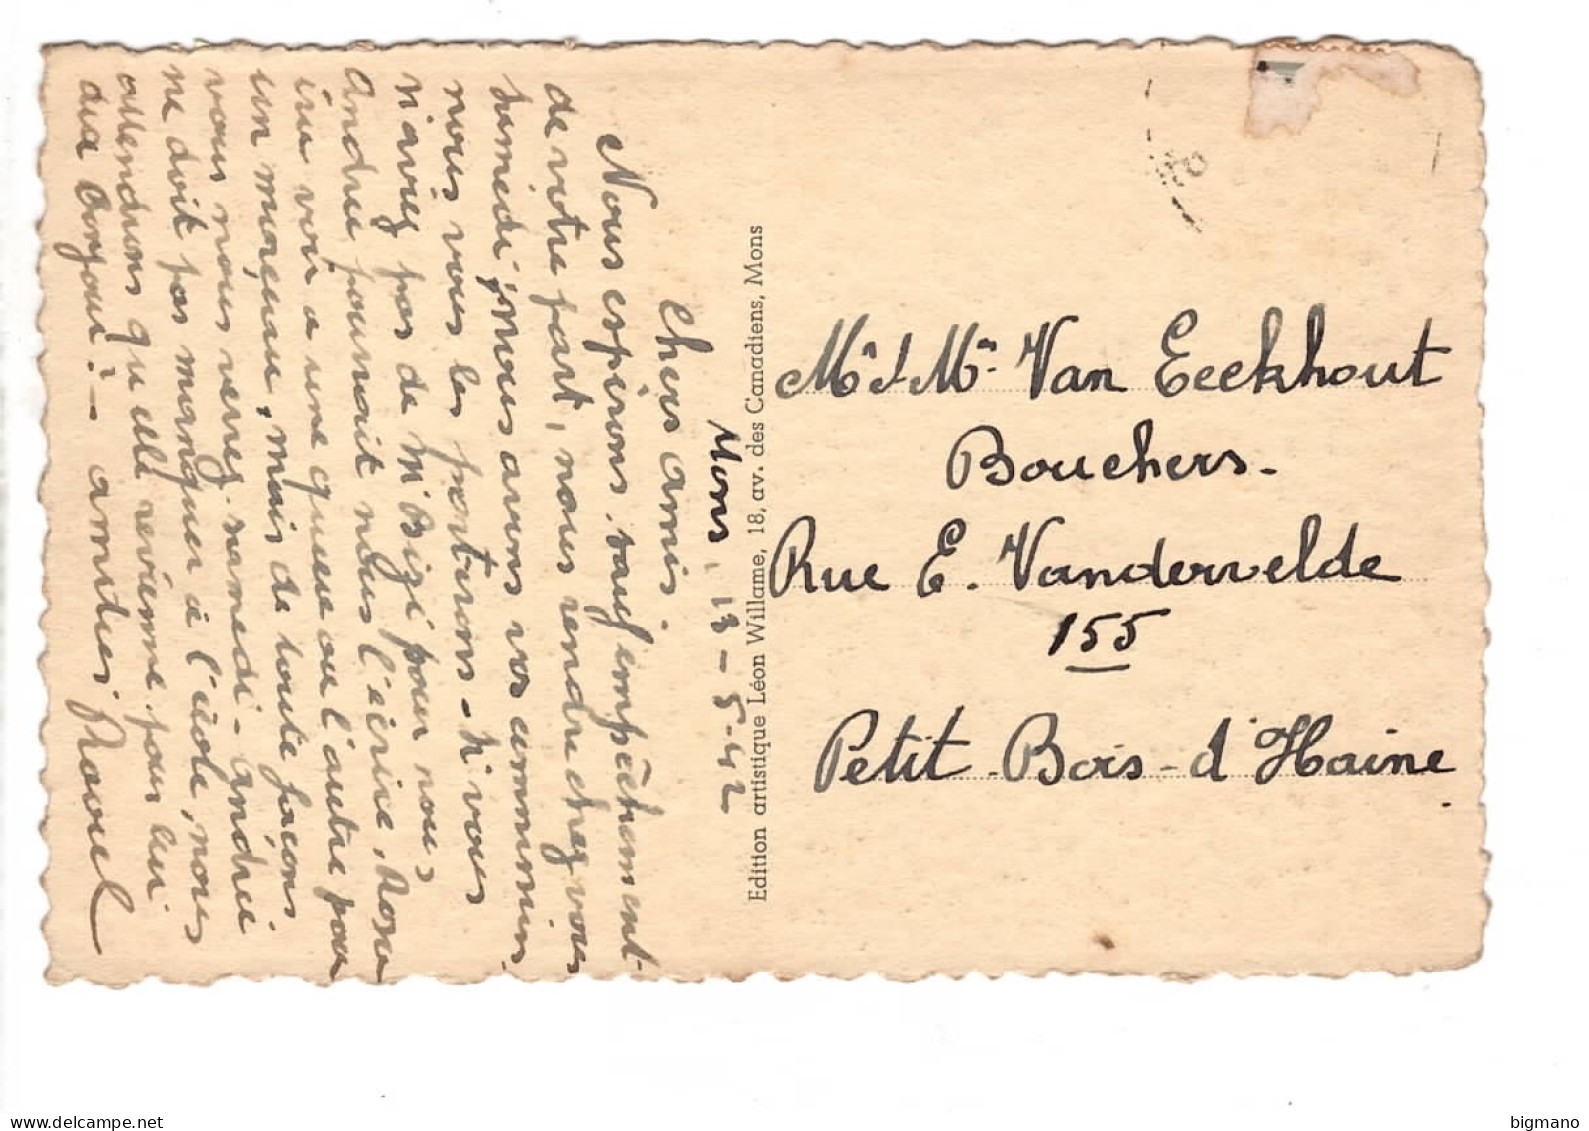 Mons, 13-5-42
Chers amis.
Nous espérons, sauf empêchement
de votre part, nous rendre chez vous
samedi, nous avons vos commmin
nous vous les porterons - si vous
n'avez pas de Mr Bizi pour nous,
André pourrait nous l'écrire, Rosa
ira voir a une queue ou l'autre pour
un morceau, mais de toute façons
vous nous verrez samedi - André
ne doit pas manquer à l'école, nous
attendrons qu'elle revienne pour lui
dire Bonjour! - amitiés Raoul
Edition artistique Léon Willame, 18, av. des Canadiens, Mons
Mr & Mme Van Eeckhout
Bouchers-
Rue E. Vandervelde
155
Petit-Bois-d'Haine.
bigmano
www.delcampe.net